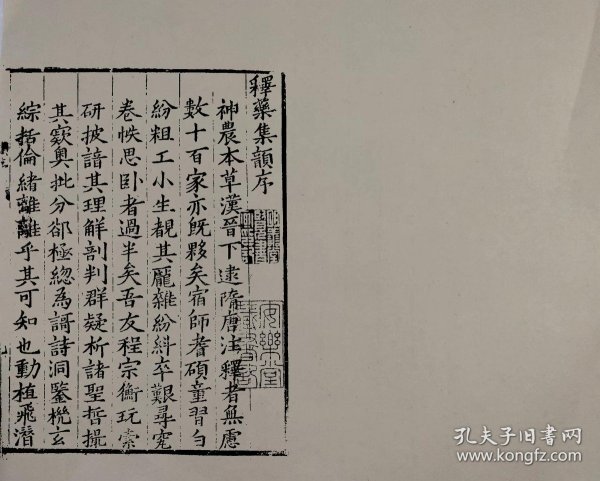 釋藥集韻序
神農本草漢晉下逮隋唐注釋者無慮
數十百家亦旣夥矣宿師耆碩童習白
紛粗工小生覩其龐雜紛糾卒艱尋究
卷帙思卧者過半矣吾友程宗衡玩索
研披諳其理解剖判群疑析諸聖哲撮
其窾奧批分郤極緫為謌詩洞鑒㮣玄
綜括倫緒離離乎其可知也動植飛潛
安樂堂
孔夫子旧书网
www.kongfz.com